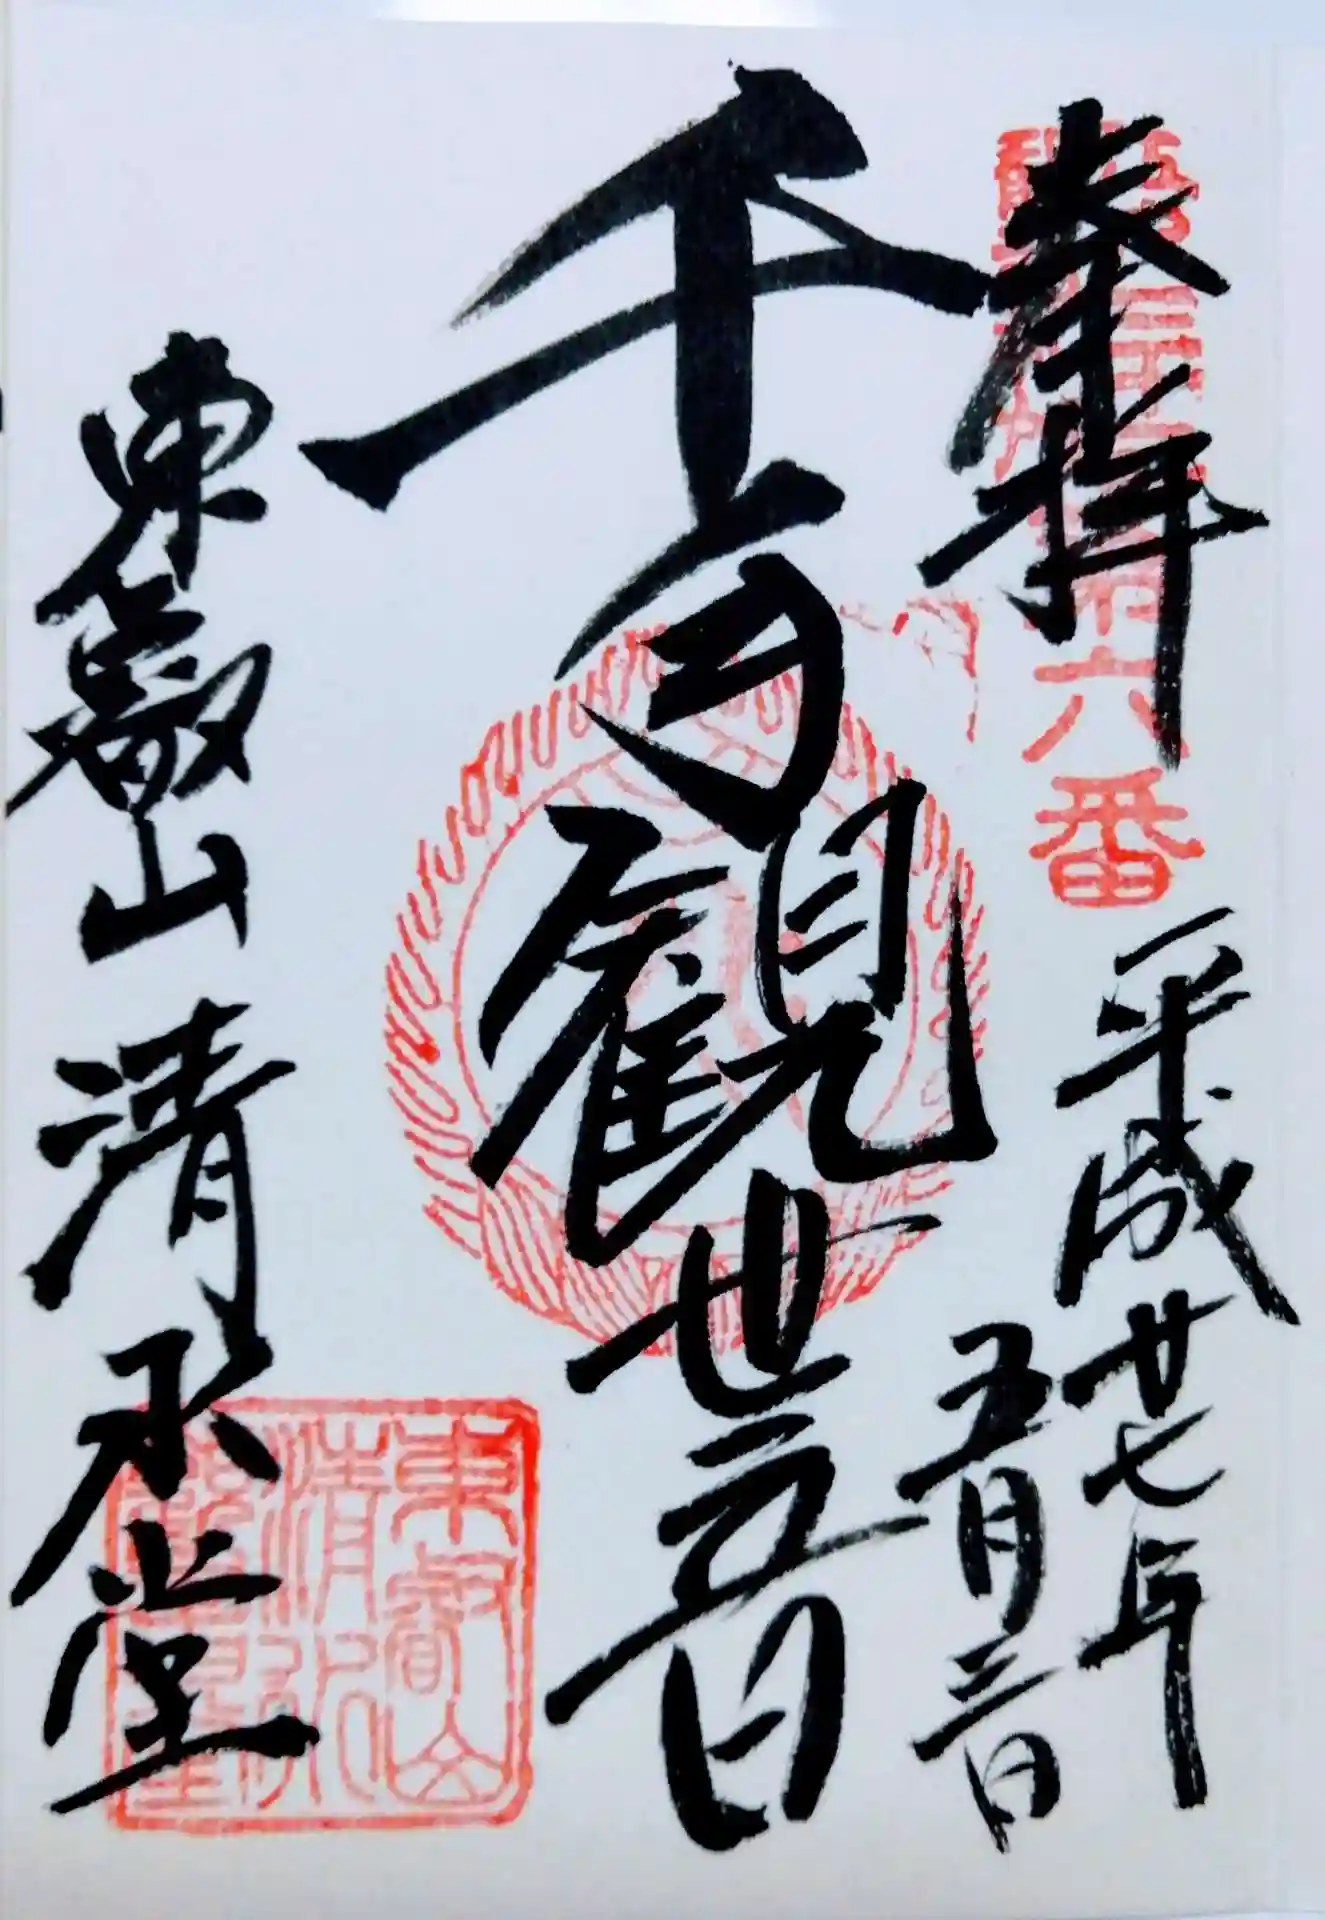 奉拝
第六番
平成廿七年
五月三日
千手観世音
東叡山 清水堂
東叡山
清水